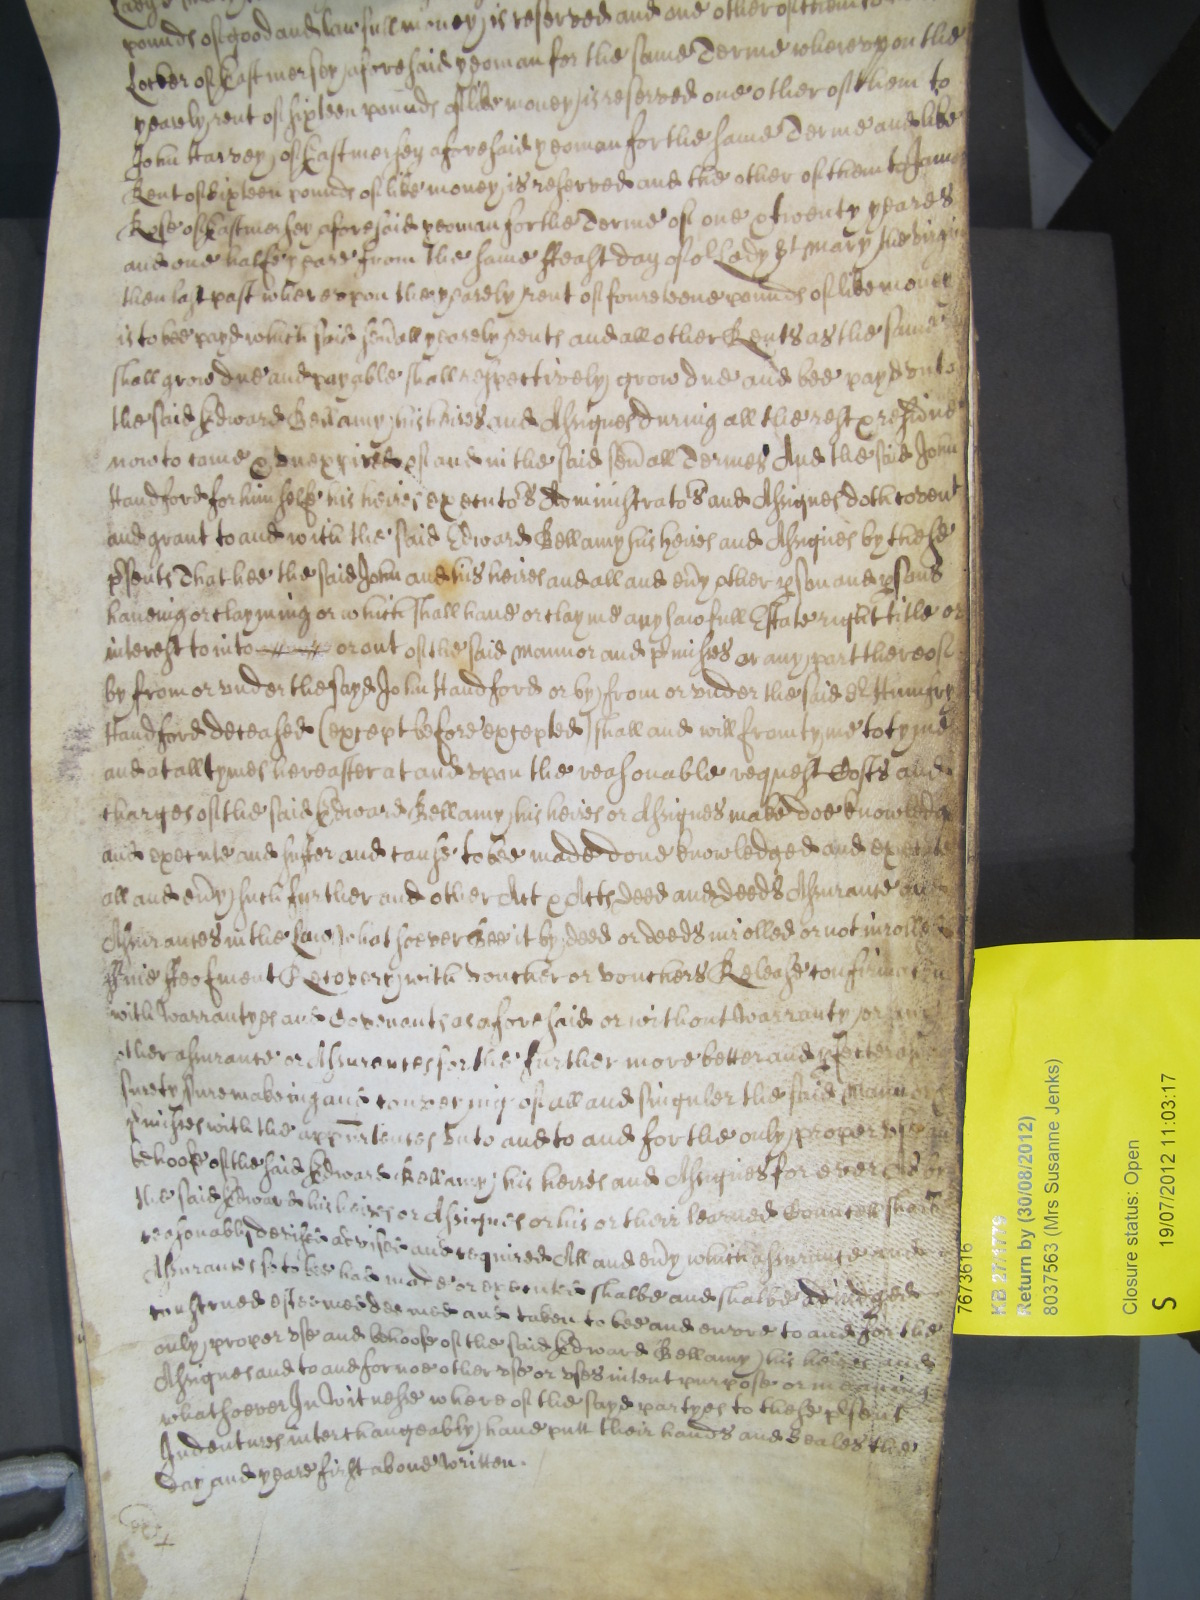 pounds of good and lawfull money is reserved and one other of them to
Locker of Eastmersey aforesaid yeoman for the same Terme whereupon the
yearely rent of sixteen pounds of like money is reserved one other of them to
John Harvey of Eastmersey aforesaid yeoman for the same Terme and like
Rent of sixteen pounds of like money is reserved and the other of them to James
Rose of Eastmersey aforesaid yeoman for the Terme of one & twenty yeares
and one halfe yeare from the same ffeast day of oʳ Lady Sᵗ Mary the virgin
then last past whereupon the yearely rent of pounds of like money
is to bee payd which said sevʳall yearely rents and all other Rents as the same
shall grow due and payable shall respectively grow due and bee payd vnto
the said Edward Bellamy his heires and Assignes during all the rest & residue
now to come & vnexpired of and in the said sevʳall Termes And the said John
Handford for himselfe his heires executoʳs Administratoʳs and Assignes doth covenᵗ
and grant to and with the said Edward Bellamy his heires and Assignes by these
pʳsents That hee the said John and his heires and all and evʳy other pson and psons
haueing or clayming or which shall haue or clayme any lawfull Estate right title or
interest to into or out of the said Mannor and pʳmisses or any part thereof
by from or vnder the sayd John Handford or by from or vnder the said Sʳ Humfry
Handford deceased (except before excepted) shall and will from tyme to tyme
and at all tymes hereafter at and vpon the reasonable request Costs and
charges of the said Edward Bellamy his heires or Assignes make doe knowledge
and execute and suffer and cause to bee made done knowledged and executed
all and evʳy such further and other Act & Acts deed and deeds Assurance and
Assurances in the Law whatsoever bee it by deed or deeds inrolled or not inrolled
ffine ffeofment Recovery with voucher or vouchers Release confirmacon
with Warrantyes and Covenants as aforesaid or without Warranty or any
other assurance or Assurances for the further more better and pfecter
surety sure makeing and conveying of all and singuler the said Mannor
pʳmisses with the appurtences Vnto and to and for the only proper vse and
behoofe of the said Edward Bellamy his heires and Assignes for ever As by
the said Edward his heires or Assignes or his or their learned Councell shalbe
reasonably devised advised and required All and evʳy which assurance and
Assurances so to bee had made or executed shalbe and shalbe adiudged
construed esteemed deemed and taken to bee and enure to and for the
only proper vse and behoofe of the said Edward Bellamy his heires and
Assignes and to and for noe other vse or vses intent purpose or meaning
whatsoever In Witnesse whereof the sayd partyes to these pʳsent
Indentures interchangeably haue putt their hands and Seales the
Day and yeare first aboue written.
7673616
KB 27/1779
Return by (30/08/2012)
8037563 (Mrs Susanne Jenks)
Closure status: Open
S 19/07/2012 11:03:17